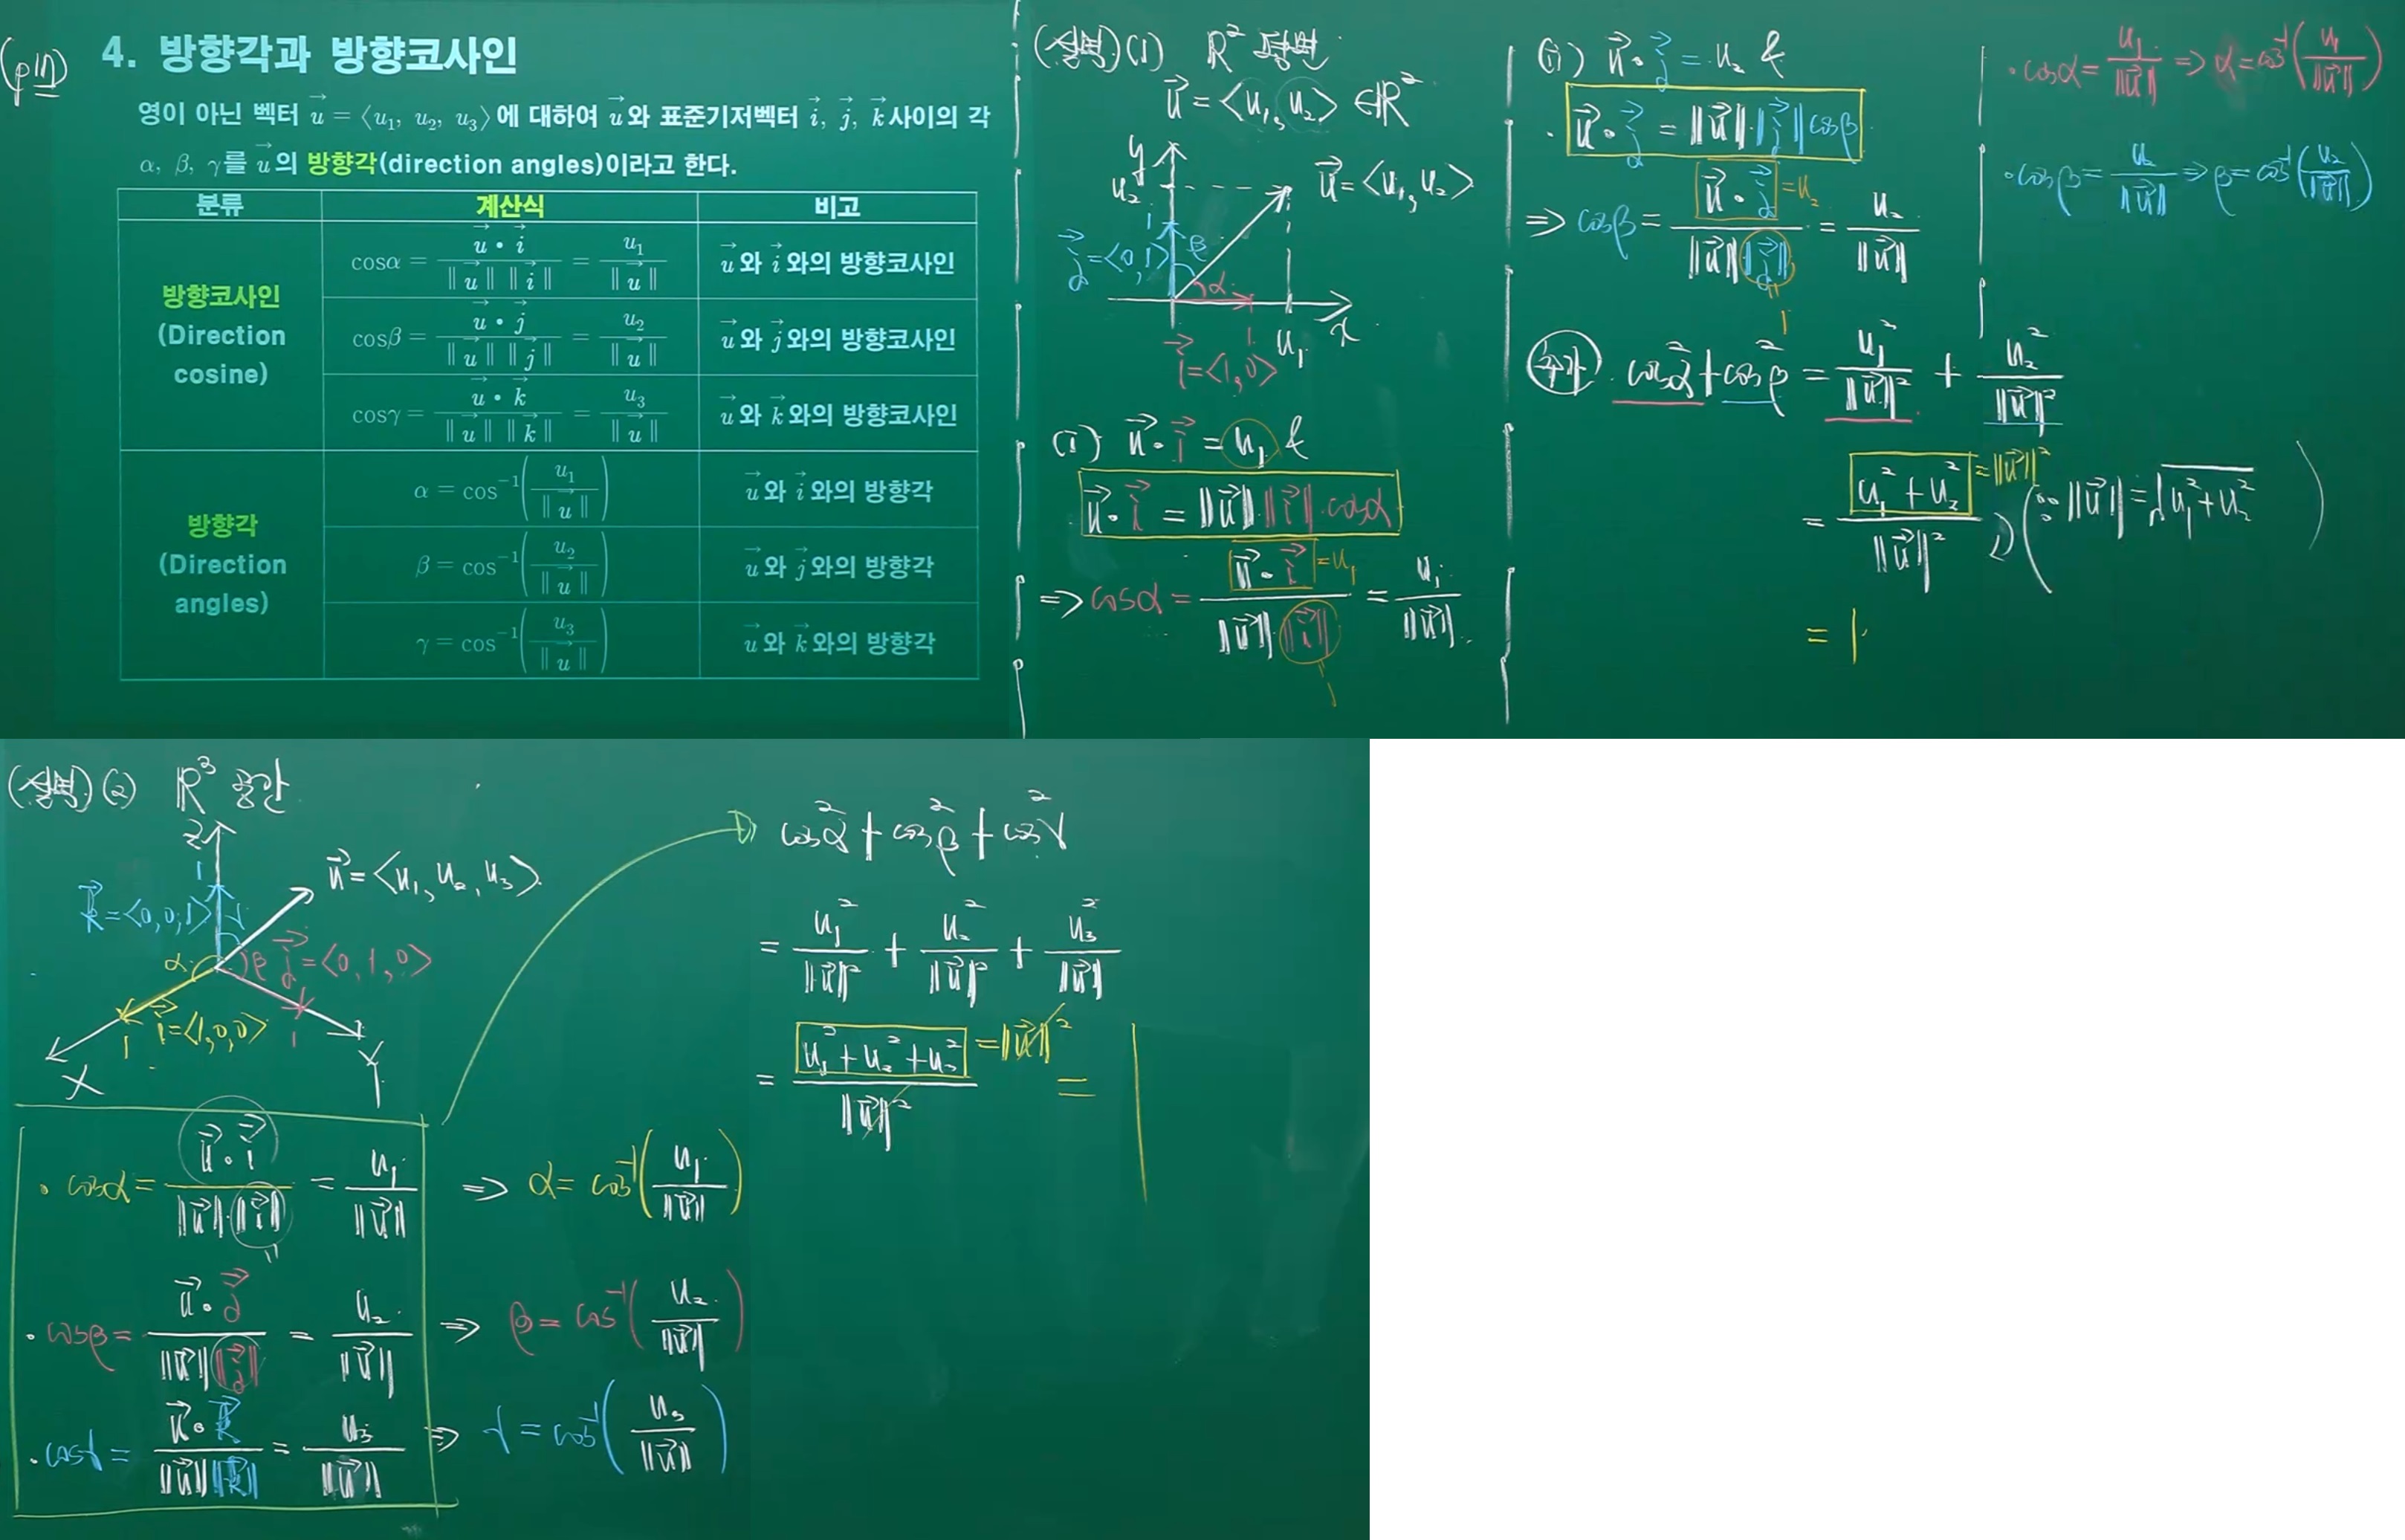 (p117)
4. 방향각과 방향코사인
영이 아닌 벡터 u⃗ = ⟨u₁, u₂, u₃⟩에 대하여 u⃗와 표준기저벡터 i⃗, j⃗, k⃗사이의 각
α, β, γ를 u⃗의 방향각(direction angles)이라고 한다.
분류 계산식 비고
방향코사인
(Direction
cosine)
cosα = u⃗ • i⃗ / ‖u⃗‖ ‖i⃗‖ = u₁ / ‖u⃗‖ u⃗와 i⃗와의 방향코사인
cosβ = u⃗ • j⃗ / ‖u⃗‖ ‖j⃗‖ = u₂ / ‖u⃗‖ u⃗와 j⃗와의 방향코사인
cosγ = u⃗ • k⃗ / ‖u⃗‖ ‖k⃗‖ = u₃ / ‖u⃗‖ u⃗와 k⃗와의 방향코사인
방향각
(Direction
angles)
α = cos⁻¹(u₁ / ‖u⃗‖) u⃗와 i⃗와의 방향각
β = cos⁻¹(u₂ / ‖u⃗‖) u⃗와 j⃗와의 방향각
γ = cos⁻¹(u₃ / ‖u⃗‖) u⃗와 k⃗와의 방향각
(설명)(1) ℝ² 평면
u⃗ = <u₁, u₂> ∈ ℝ²
y
u₂
u⃗ = <u₁, u₂>
1
j⃗ = <0, 1>
β
α
1
u₁
x
i⃗ = <1, 0>
(i) u⃗ • i⃗ = u₁ &
u⃗ • i⃗ = ‖u⃗‖ ‖i⃗‖ cosα
⇒ cosα = u⃗ • i⃗ = u₁ / ‖u⃗‖ ‖i⃗‖ = u₁ / ‖u⃗‖
1
(ii) u⃗ • j⃗ = u₂ &
• u⃗ • j⃗ = ‖u⃗‖ ‖j⃗‖ cosβ
⇒ cosβ = u⃗ • j⃗ = u₂ / ‖u⃗‖ ‖j⃗‖ = u₂ / ‖u⃗‖
1
• cosα = u₁ / ‖u⃗‖ ⇒ α = cos⁻¹(u₁ / ‖u⃗‖)
• cosβ = u₂ / ‖u⃗‖ ⇒ β = cos⁻¹(u₂ / ‖u⃗‖)
추가 cos²α + cos²β = u₁² / ‖u⃗‖² + u₂² / ‖u⃗‖²
= u₁² + u₂² = ‖u⃗‖² / ‖u⃗‖² (∵ ‖u⃗‖ = √u₁² + u₂²)
= 1
(설명)(2) ℝ³ 공간
Z
1
u⃗ = <u₁, u₂, u₃>
k⃗ = <0, 0, 1>
γ
α
β
j⃗ = <0, 1, 0>
i⃗ = <1, 0, 0>
1
1
X
Y
• cosα = u⃗ • i⃗ / ‖u⃗‖ • ‖i⃗‖ = u₁ / ‖u⃗‖ ⇒ α = cos⁻¹(u₁ / ‖u⃗‖)
• cosβ = u⃗ • j⃗ / ‖u⃗‖ ‖j⃗‖ = u₂ / ‖u⃗‖ ⇒ β = cos⁻¹(u₂ / ‖u⃗‖)
• cosγ = u⃗ • k⃗ / ‖u⃗‖ ‖k⃗‖ = u₃ / ‖u⃗‖ ⇒ γ = cos⁻¹(u₃ / ‖u⃗‖)
cos²α + cos²β + cos²γ
= u₁² / ‖u⃗‖² + u₂² / ‖u⃗‖² + u₃² / ‖u⃗‖
= u₁² + u₂² + u₃² = ‖u⃗‖² / ‖u⃗‖² = 1